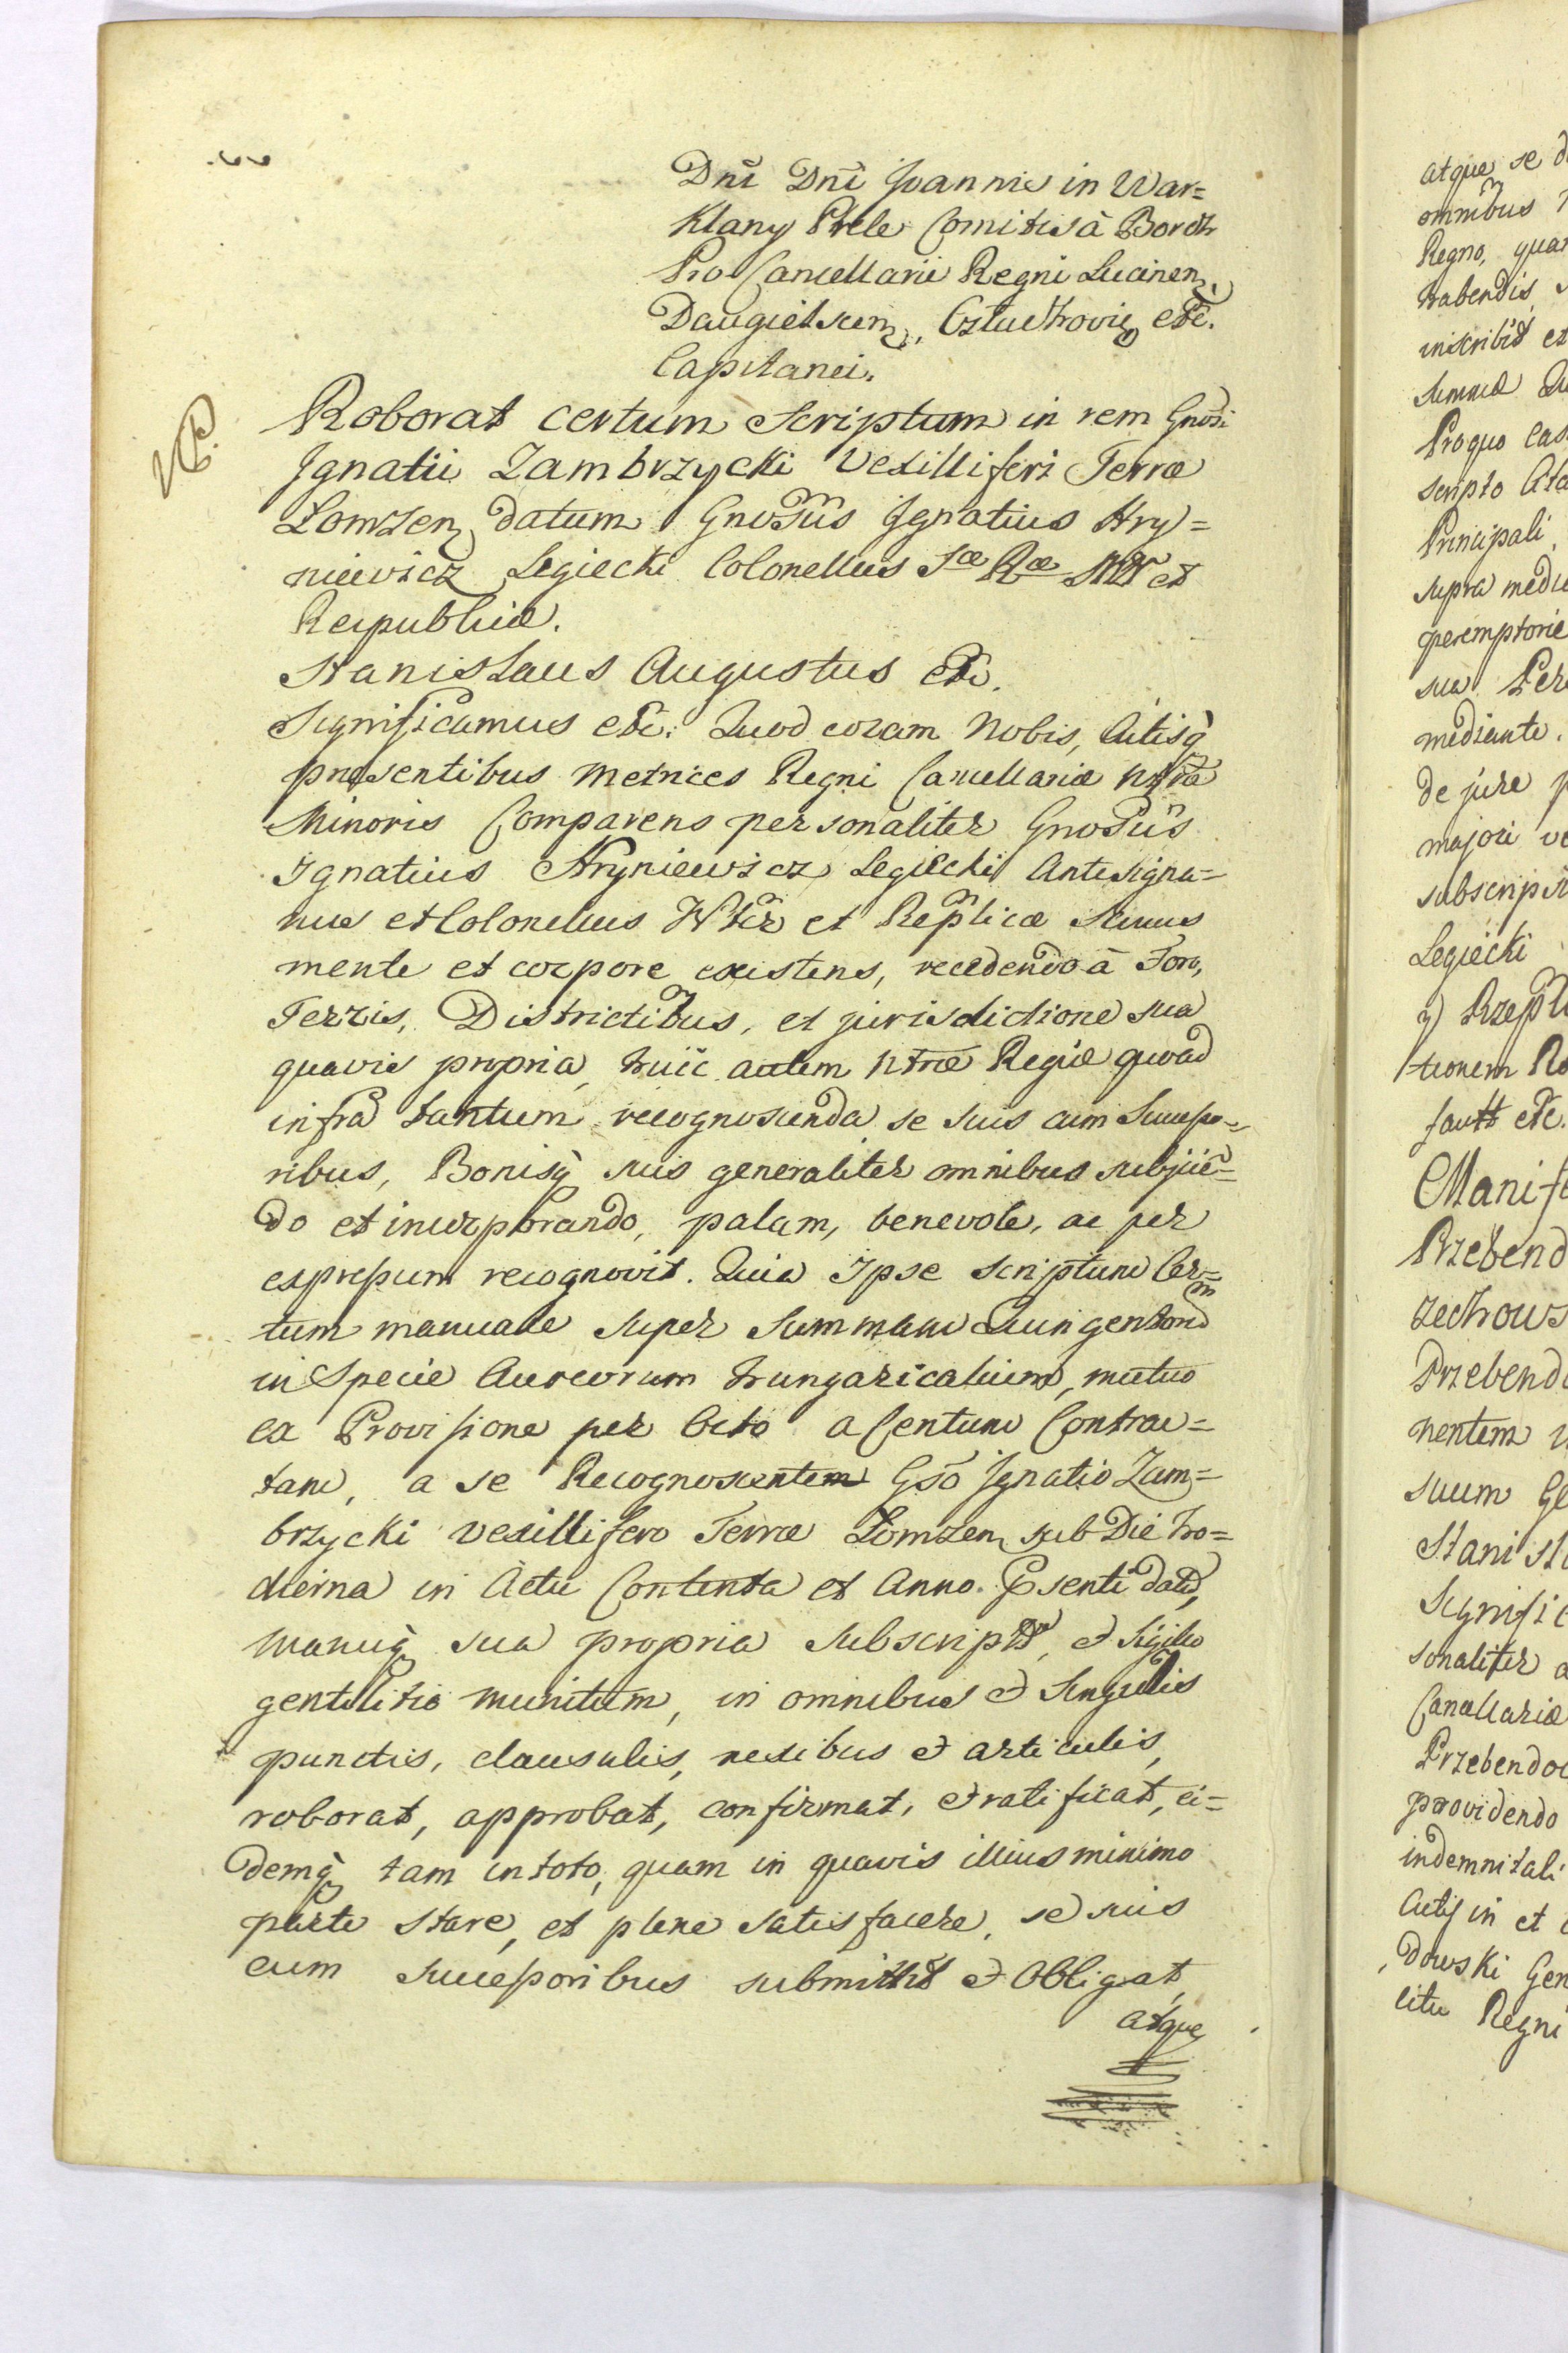 Dnī Dnī Joannis in War=
Klany Prele Comitis à Borch
Pro Cancellarii Regni Lucinen,
Daugielscen, Cztuchovię etc.
Capitanei.
Roborat certum Scriptum in rem Gnosi
Ignatii Zambrzycki Vexilliferi Terræ
Lomzen, datum Gnosus Ignatius Hry=
niewicz Legiecki Colonellus Sæ Ræ Mtt et
Reipublicæ.
Stanislaus Augustus etc.
Significamus etc. Quod coram Nobis, Actisq̀
præsentibus Metrices Regni Cancellariæ Ntræ
Minoris Comparens personaliter Gnosus
Ignatius Hryniewicz Legiecki Antesigna=
nus et Colonellus et Replicæ Sanus
mente et corpore existens, recedendo à Foro,
Terris, Districtibus, et jurisdictione sua
quavis propria, huic autem Ntræ Regiæ quoad
infra tantum recognoscenda se suis cum Succeso=
ribus, Bonisq̀ suis generaliter omnibus subjicie=
do et incorporando, palam, benevole, ac per
expressum recognovit. Quia Ipse Scriptum Cer=
tum manuale super Summam Quingentorum
in Specie Aureorum hungaricalium, mutuo
ea Provisione per Octo a Centum Contrac=
tam, a se Recognoscentem Gsō Ignatio Zam=
brzycki vexillifero Terræ Łomzen, sub Die ho=
dierna in Actu Contenta et Anno Psenti datū,
manuq̀ sua propria subscriptū, et sigillo
gentilitio munitum, in omnibus et Singulis
punctis, clausulis, nexibus et articulis,
roborat, approbat, confirmat, et ratificat, ei=
demq̀ tam in toto, quam in quavis illius minimo
parte stare, et plene satisfacere, se suis
cum succesoribus submittit et Obligat,
atque

atque se
omnibus
Regno, qua
habendis,
inscribit et
Summæ
Pro quo cas
scripto
Principali,
supra
peremptorie
sua
mediante.
de jure p
majori ve
subscrips
Legiecki
Rzepl
tionem Ro
fautt etc.
Manife
Przebend
zechows
Przebend
nentem
suum Ge
Stanisl
Signific
sonaliter a
Cancellariæ
Przebendo
providendo
indemnitati
Actis in et
dowski Gen
litu Regni